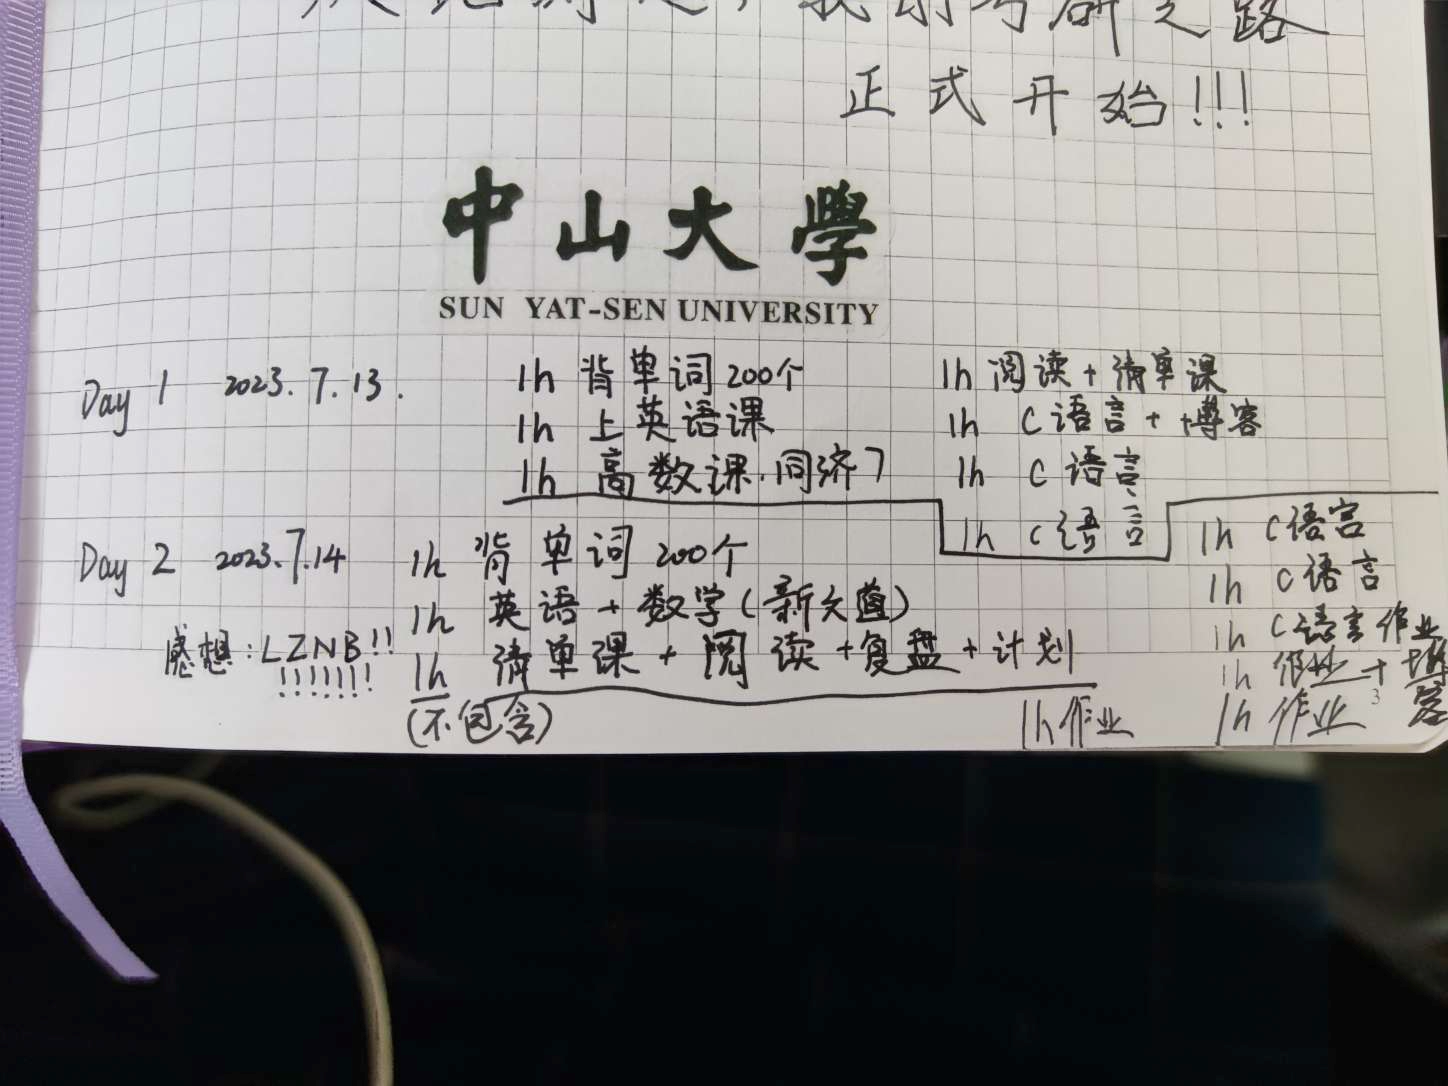 我的考研之路
正式开始!!!
中山大學
SUN YAT-SEN UNIVERSITY
Day 1 2023.7.13.
1h 背单词 200个
1h 上英语课
1h 高数课.同济7
1h 阅读+清单课
1h C语言++博客
1h C语言
1h C语言
Day 2 2023.7.14
感想:LZNB!!
!!!!!!!
1h 背单词 200个
1h 英语+数学(新文道)
1h 清单课+阅读+复盘+计划
(不包含)
1h 作业
1h C语言
1h C语言
1h C语言作业
1h 作业+博客
1h 作业
3